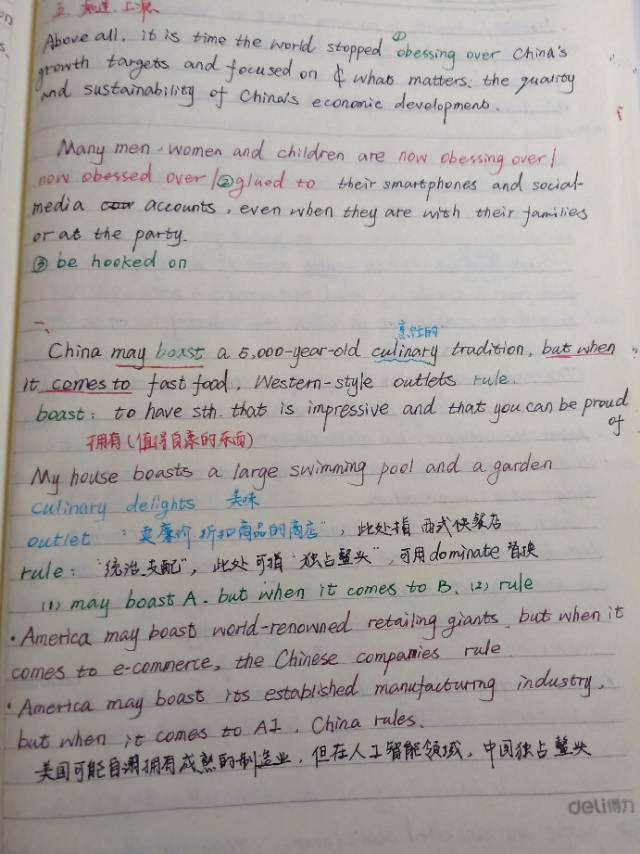 五、
①
Above all, it is time the world stopped obessing over China's
growth targets and focused on what matters: the quality
and sustainability of China's economic development.
Many men, women and children are now obessing over /
now obsessed over / ② glued to their smartphones and social-
media accounts, even when they are with their families
or at the party.
③ be hooked on
一、
"烹饪的"
China may boast a 5,000-year-old culinary tradition, but when
it comes to fast food, Western-style outlets rule.
boast: to have sth. that is impressive and that you can be proud
of
拥有(值得自豪的东西)
My house boasts a large swimming pool and a garden
culinary delights 美味
outlet : "卖廉价,折扣商品的商店", 此处指 西式快餐店
rule: "统治,支配", 此处可指 "独占鳌头", 可用 dominate 替换
(1) may boast A, but when it comes to B, (2) rule
· America may boast world-renowned retailing giants, but when it
comes to e-commerce, the Chinese companies rule
· America may boast its established manufacturing industry,
but when it comes to AI, China rules.
美国可能自诩拥有成熟的制造业, 但在人工智能领域, 中国独占鳌头
deli得力